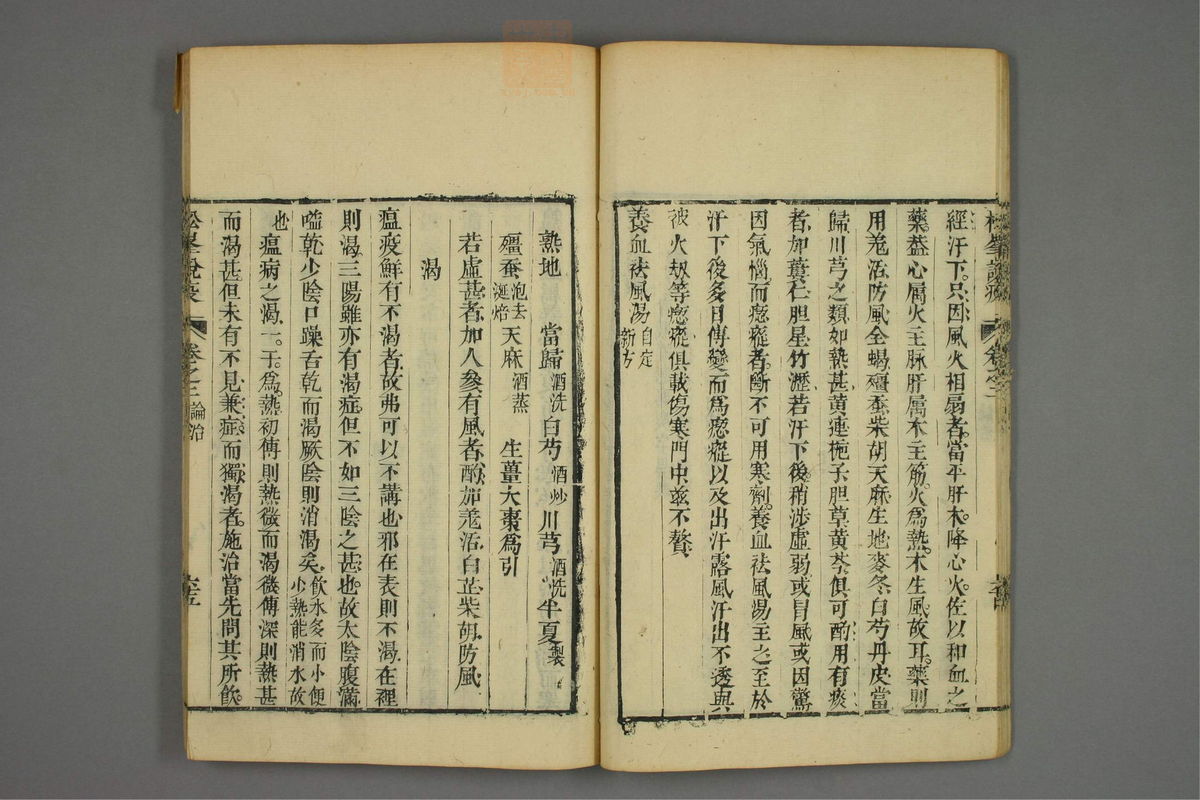 經汗下只因風火相扇者當平肝木降心火佐以和血之
藥蓋心屬火主脉肝屬木主筋火爲熱木生風故耳藥則
用羗活防風全蝎殭蚕柴胡天麻生地麥冬白芍丹皮當
歸川芎之類如熱甚黄連梔子胆草黄芩俱可酌用有痰
者加蔞仁胆星竹瀝若汗下後稍涉虛弱或冒風或因驚
因氣惱而瘛瘲者斷不可用寒劑養血祛風湯主之至於
汗下後多日傳變而爲瘛瘲以及出汗露風汗出不透與
被火刼等瘛瘲俱載傷寒門中茲不贅
養血祛風湯 自定新方
熟地 當歸 酒洗 白芍 酒炒 川芎 酒洗 半夏 製
殭蚕 泡去涎焙 天麻 酒蒸 生薑大棗爲引
若虛甚者加人參有風者酌加羗活白芷柴胡防風
渴
瘟疫鮮有不渴者故弗可以不講也邪在表則不渴在裡
則渴三陽雖亦有渴症但不如三陰之甚也故太陰腹滿
嗌乾少陰口躁舌乾而渴厥陰則消渴矣 飲水多而小便少熱能消水故
也 瘟病之渴一于爲熱初傳則熱微而渴微傳深則熱甚
而渴甚但未有不見兼症而獨渴者施治當先問其所飲
松峯說疫 卷之三 論治